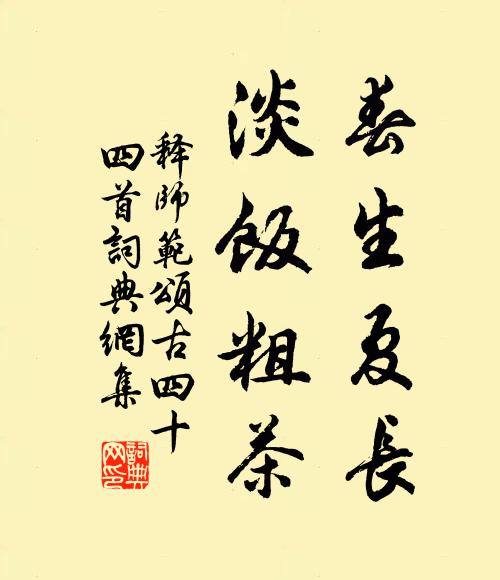 春生夏長
淡飯粗茶
释師範頌古四十
四首詞典網集
詞典网印